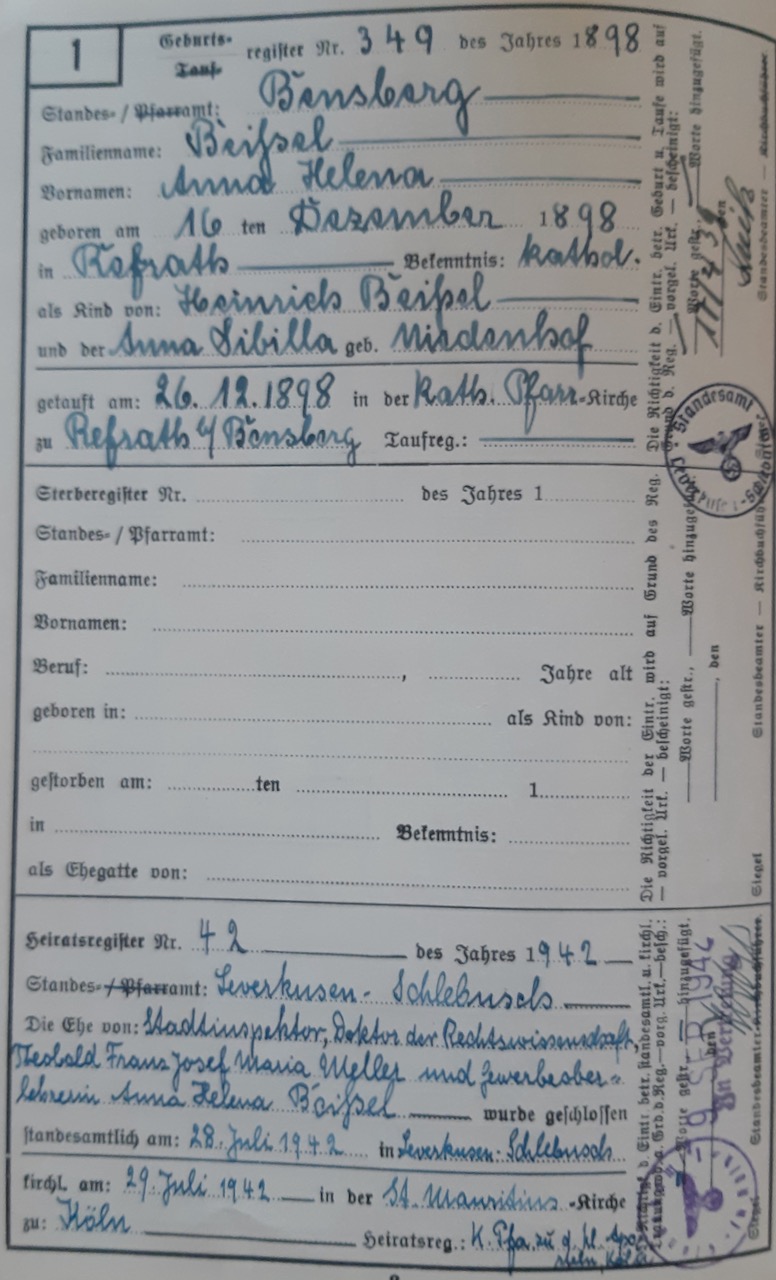 1
Geburts-
Tauf-
register Nr. 349 des Jahres 1898
Standes- / Pfarramt: Bensberg
Familienname: Beißel
Vornamen: Anna Helena
geboren am 16 ten Dezember 1898
in Refrath Bekenntnis: kathol.
als Kind von: Heinrich Beißel
und der Anna Sibilla geb. Niedenhof
getauft am: 26.12.1898 in der kath. Pfarr-Kirche
zu Refrath b/ Bensberg Taufreg.:
Sterberegister Nr. des Jahres 1
Standes- / Pfarramt:
Familienname:
Vornamen:
Beruf: , Jahre alt
geboren in: als Kind von:
gestorben am: ten 1
in Bekenntnis:
als Ehegatte von:
Heiratsregister Nr. 42 des Jahres 1942
Standes- / Pfarramt: Leverkusen-Schlebusch
Die Ehe von: Stadtinspektor, Doktor der Rechtswissenschaft,
Theobald Franz Josef Maria Meller und Gewerbeober-
lehrerin Anna Helena Beißel wurde geschlossen
standesamtlich am: 28. Juli 1942 in Leverkusen-Schlebusch
kirchl. am: 29. Juli 1942 in der St. Mauritius-Kirche
zu: Köln Heiratsreg.: K. Pfa. zu d. hl. Apo-
steln, Köln
Die Richtigkeit d. Eintr. betr. Geburt u. Taufe wird auf
Grund d. Reg. — vorgel. Urk. — bescheinigt:
Worte gestr., Worte hinzugefügt.
den
Standesbeamter — Kirchbuchführer
Standesamt
Die Richtigkeit der Eintr. wird auf Grund des Reg.
— vorgel. Urk. — bescheinigt:
Worte gestr., Worte hinzugefügt
, den
Siegel Standesbeamter — Kirchbuchführer
Die Richtigkeit d. Eintr. betr. standesamtl. u. kirchl.
Trauung w. a. Grd. d. Reg. — vorg. Urk. — besch.:
Worte gestr. — hinzugefügt.
den
In Vertretung
Siegel Standesbeamter